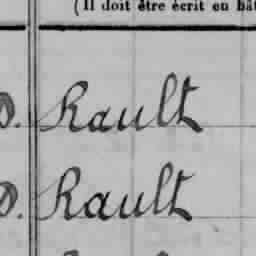 (Il doit être écrit en bât
D. Rault
D. Rault